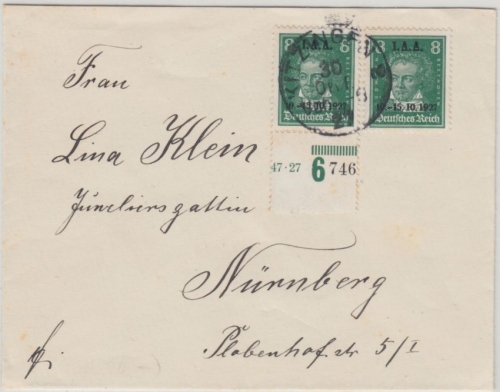 8 8
I.A.A. I.A.A.
KITZINGEN
30
2
10.-15.10.1927 10.-15.10.1927
Deutsches Reich Deutsches Reich
47·27 6 746
Frau
Lina Klein
Juweliersgattin
Nürnberg
Plobenhofstr 5/I